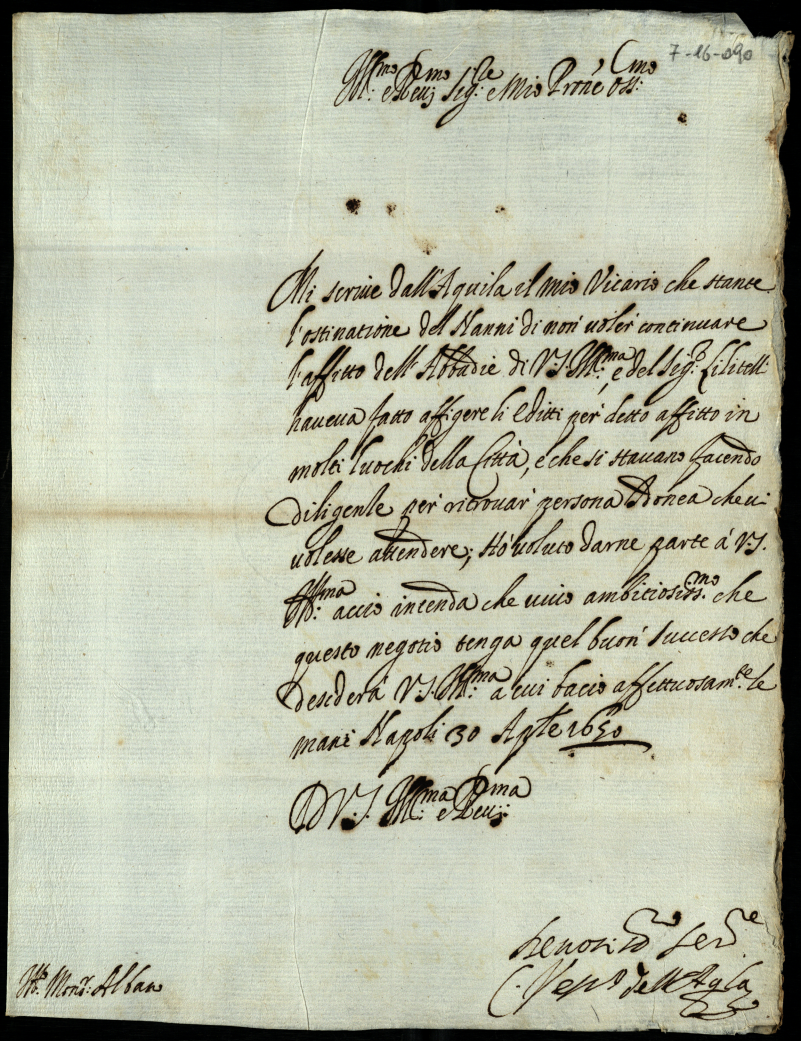 7-16-090
Ill.mo e Rev.mo Sig.re e Mio Prone Oss.mo
Mi scrive dall'Aquila il mio Vicario che stante
l'ostinatione del Nanni di non voler continuare
l'affitto dell'Abbadie di V.S. Ill.ma, e del Sig.r
haveva fatto affigere li Editti per detto affitto in
molti luochi della Città, e che si stavano facendo
diligente per ritrovar persona Idonea che vi
volesse attendere; Hò voluto darne parte à V.S.
Ill.ma accio intenda che vivo ambitiosiss.mo che
questo negotio tenga quel buon successo che
desidera V.S. Ill.ma a cui bacio affettuosam.te le
mani Napoli 30 Aple 1650
D V.S. Ill.ma e Rev.ma
Devotiss.o Ser.re
Vesc.o dell'Aqla
Mons.r Alban